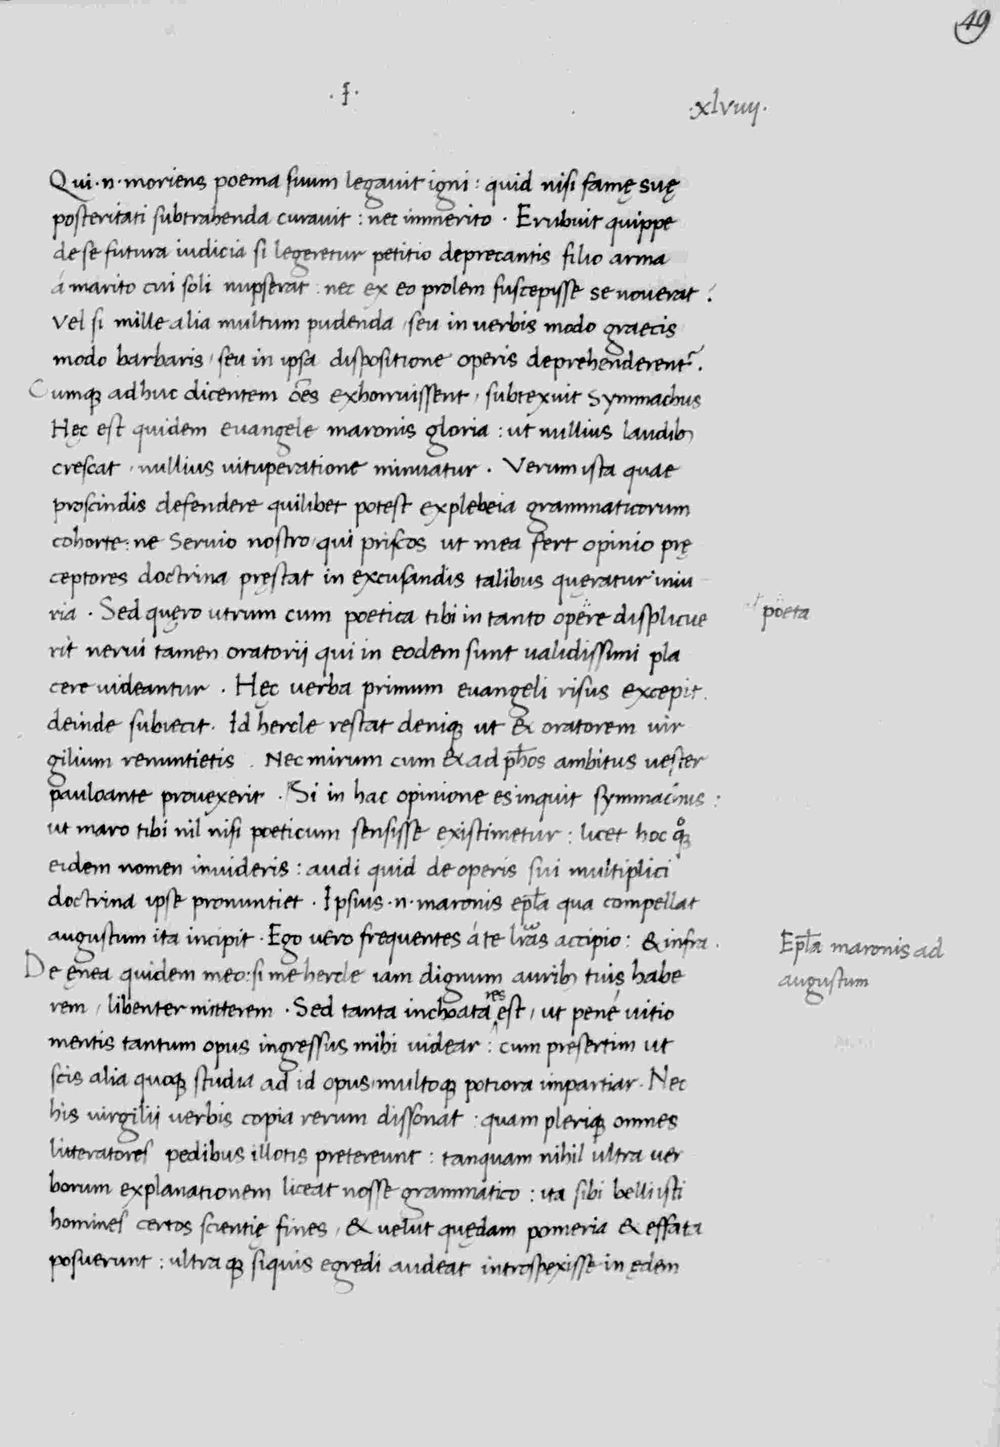 49
.I.
.xlviiij.
Qui .n. moriens poema suum legavit igni : quid nisi famę suę
posteritati subtrahenda curavit : nec immerito . Erubuit quippe
de se futura iudicia si legeretur petitio deprecantis filio arma
á marito cui soli nupserat : nec ex eo prolem suscepisse se noverat .
vel si mille alia multum pudenda , seu in verbis modo graecis
modo barbaris , seu in ipsa dispositione operis deprehenderent᷑ .
Cumq; adhuc dicentem oēs exhorruissent , subtexuit Symmachus
Hęc est quidem evangele maronis gloria : ut nullius laudib;
crescat , nullius vituperatione minuatur . Verum ista quae
proscindis defendere quilibet potest ex plebeia grammaticorum
cohorte : ne Servio nostro , qui priscos ut mea fert opinio prę
ceptores doctrina pręstat in excusandis talibus quęratur iniu
ria . Sed quęro utrum cum poetica tibi in tanto opere displicue
poeta
rit nervi tamen oratorii qui in eodem sunt validissimi pla
cere videantur . Hęc verba primum evangeli risus excepit .
deinde subiecit . Id hercle restat deniq; ut & oratorem vir
gilium renuntietis . Nec mirum cum & ad ph̄os ambitus vester
paulo ante provexerit . Si in hac opinione es inquit symmachus :
ut maro tibi nil nisi poeticum sensisse existimetur : licet hoc qͦq;
eidem nomen invideris : audi quid de operis sui multiplici
doctrina ipse pronuntiet . Ipsius .n. maronis epl̄a qua compellat
augustum ita incipit . Ego vero frequentes á te lr̄as accipio : & infra .
Epl̄a maronis ad
augustum
De ęnea quidem meo : si me hercle iam dignum aurib; tuis habe
rem , libenter mitterem . Sed tanta inchoata res est , ut pené vitio
mentis tantum opus ingressus mihi videar : cum presertim ut
scis alia quoq; studia ad id opus multoq; potiora impartiar . Nec
his virgilii verbis copia rerum dissonat : quam pleriq; omnes
litteratores pedibus illotis pretereunt : tanquam nihil ultra ver
borum explanationem liceat nosse grammatico : ita sibi belli isti
homines certos scientię fines , & velut quędam pomeria & effata
posuerunt : ultra q; siquis egredi audeat introspexisse in ędem